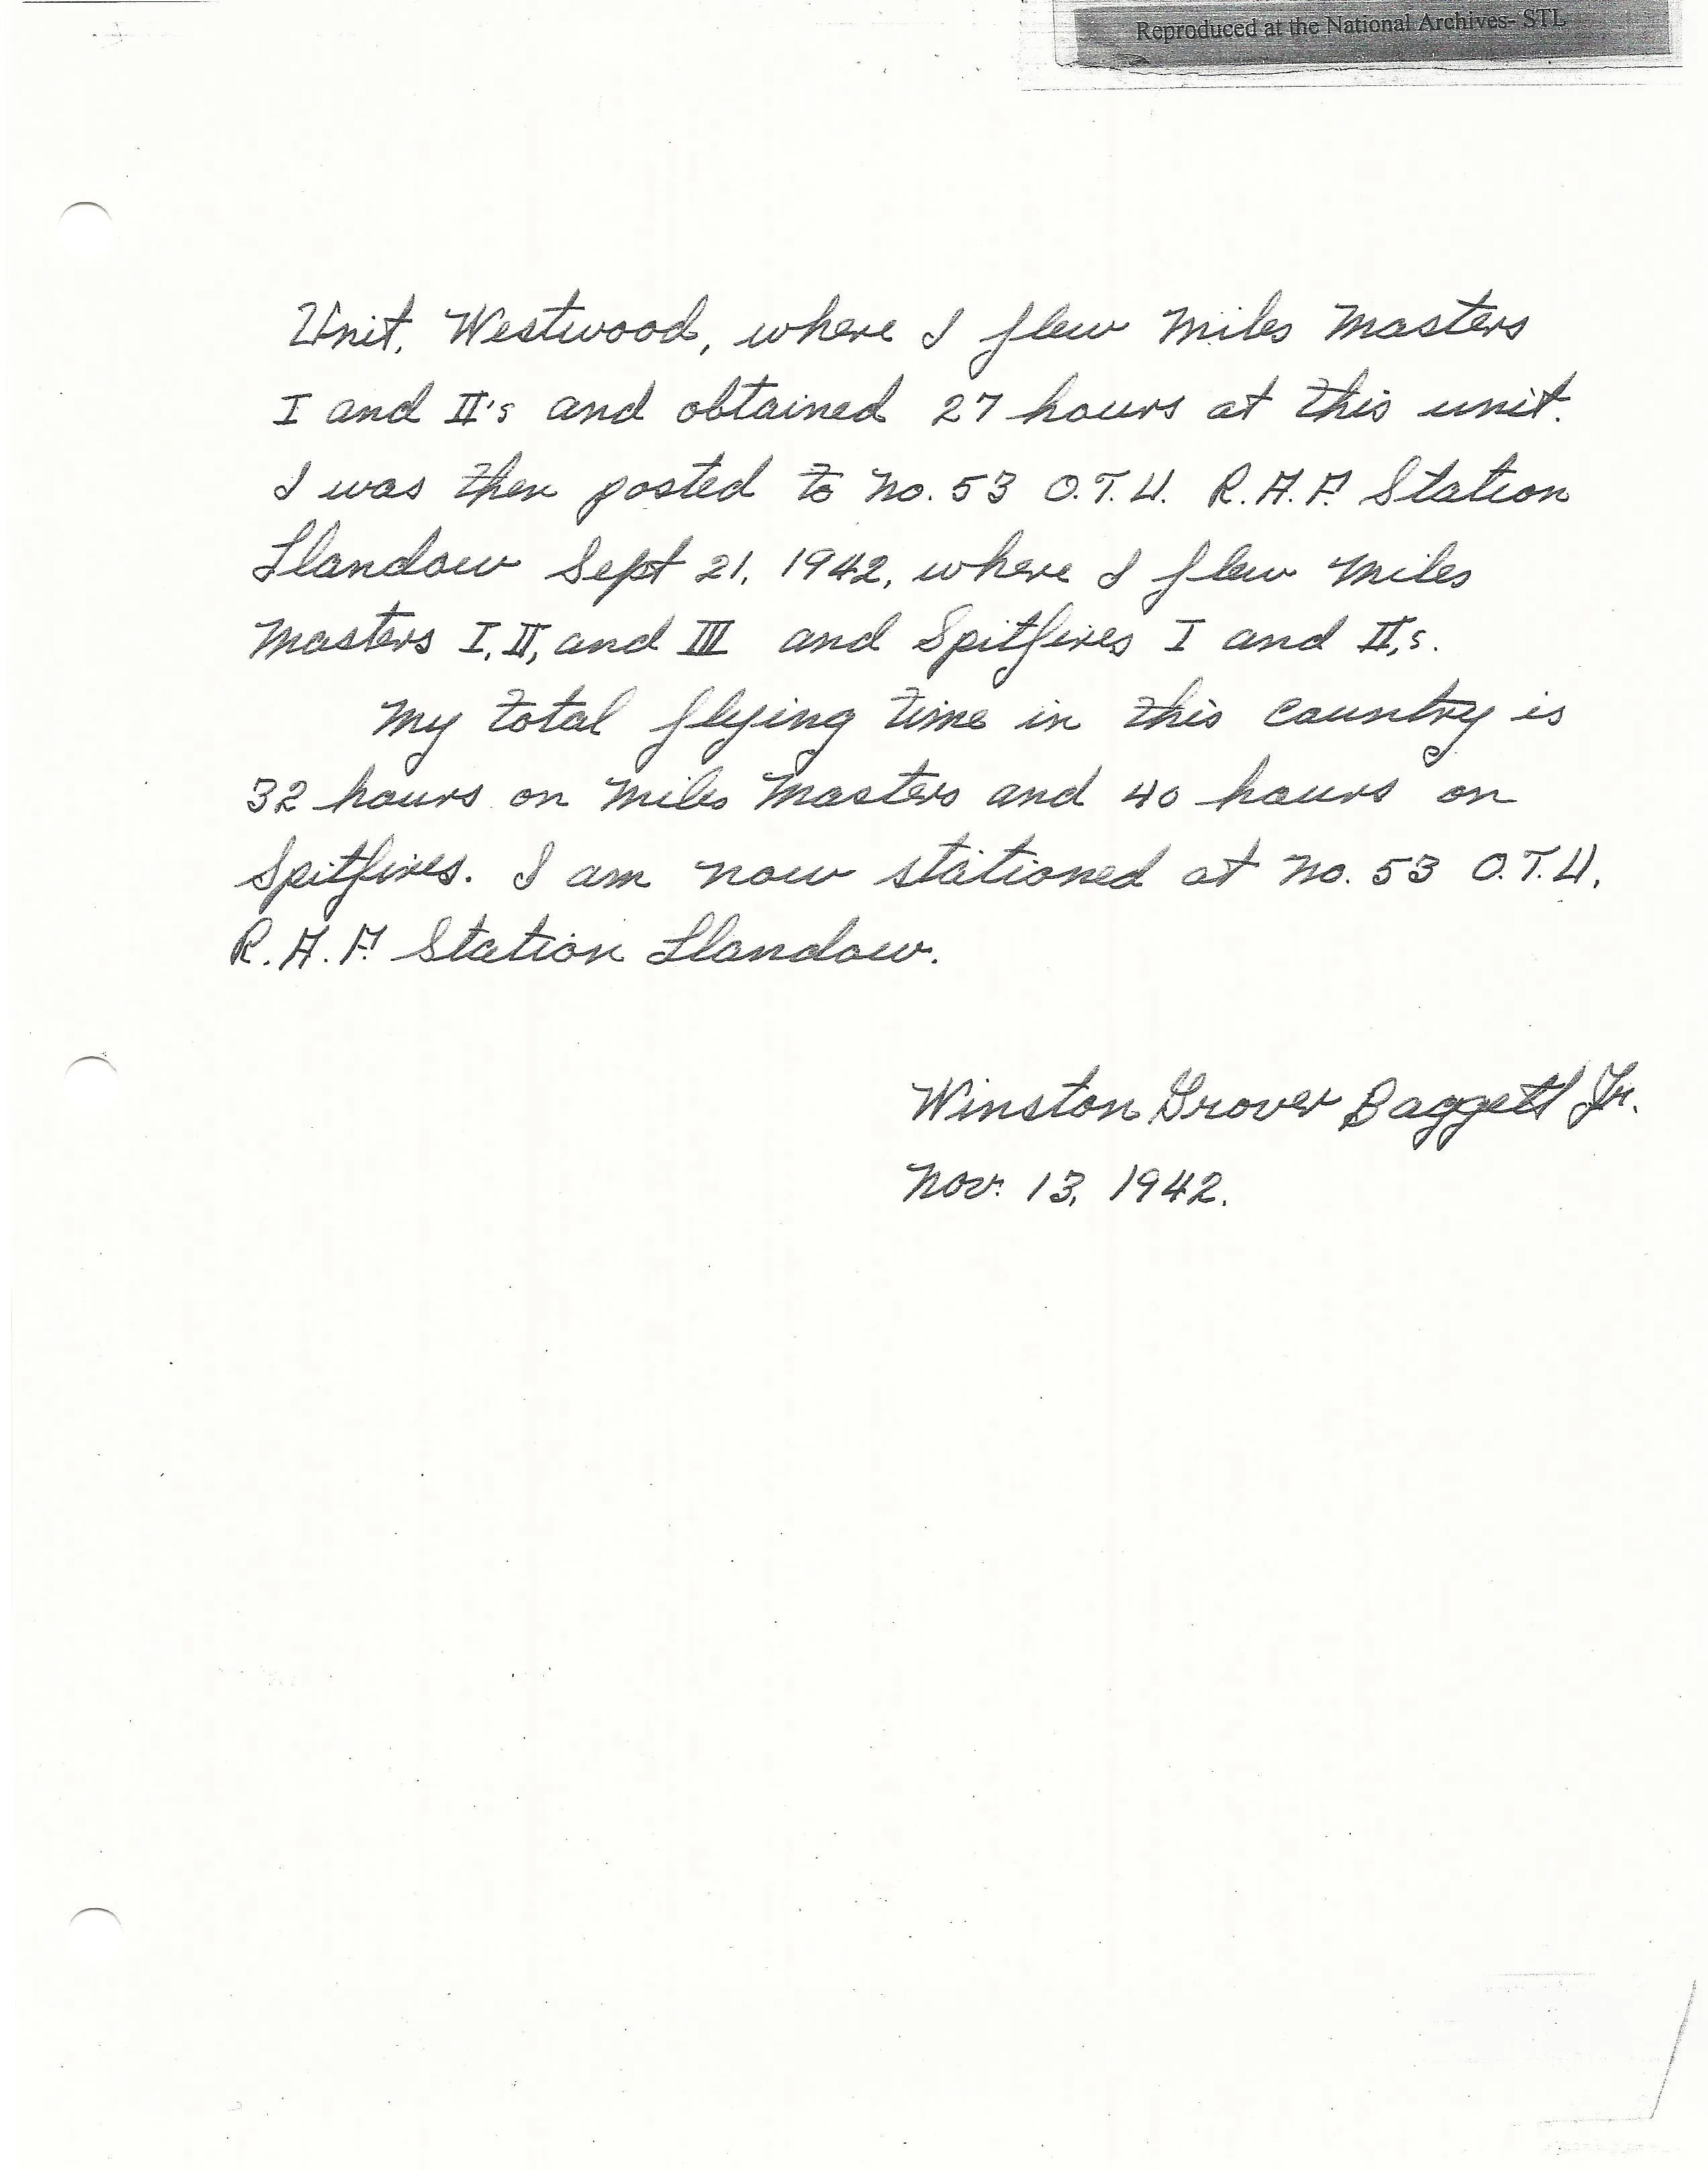 Reproduced at the National Archives- STL
Unit, Westwood, where I flew Miles Masters
I and II's and obtained 27 hours at this unit.
I was then posted to No. 53 O.T.U. R.A.F. Station
Llandow Sept 21, 1942, where I flew Miles
Masters I, II, and III and Spitfires I and II,s.
My total flying time in this country is
32 hours on Miles Masters and 40 hours on
Spitfires. I am now stationed at No. 53 O.T.U.
R.A.F. Station Llandow.
Winston Grover Baggett Jr.
Nov. 13, 1942.